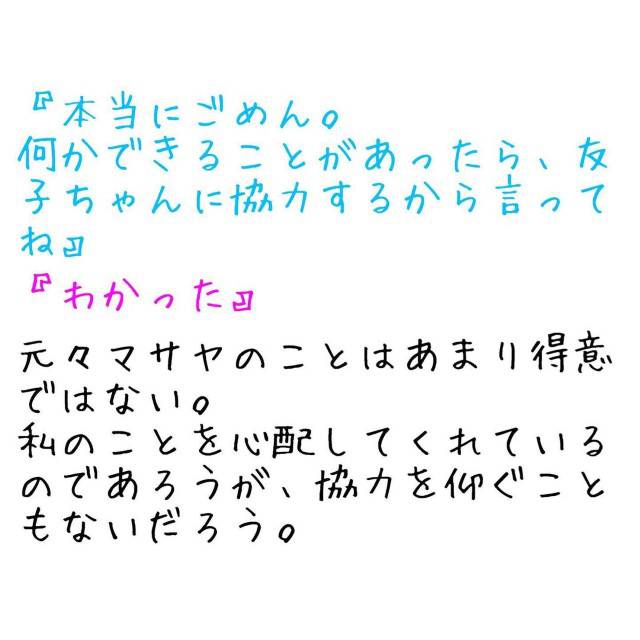 『本当にごめん。
何かできることがあったら、友
子ちゃんに協力するから言って
ね』
『わかった』
元々マサヤのことはあまり得意
ではない。
私のことを心配してくれている
のであろうが、協力を仰ぐこと
もないだろう。